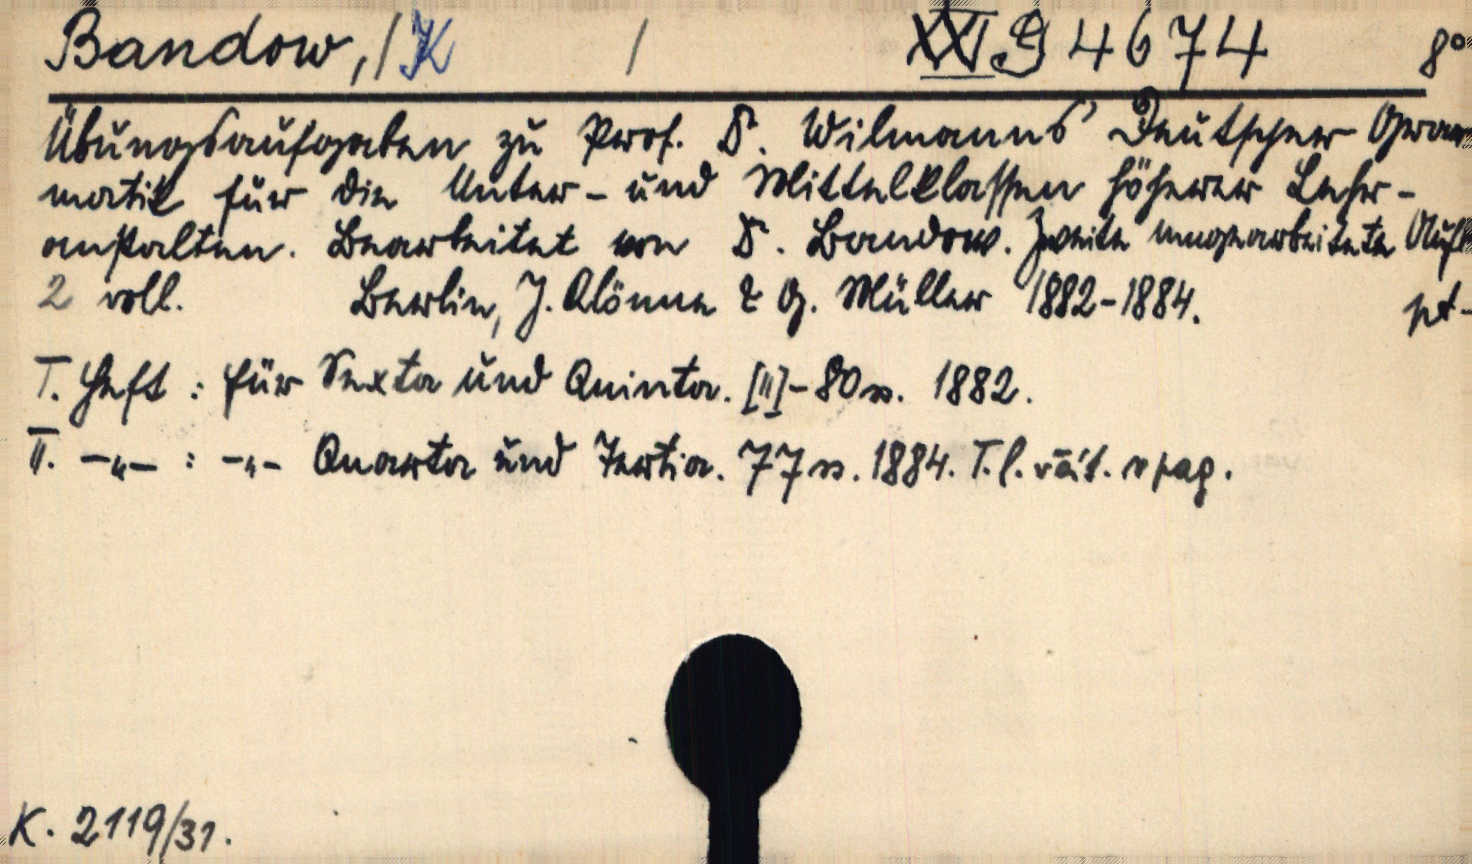 Bandow, /K / XXI 9 4674 8°
Übungsaufgaben zu Prof. D. Wilmanns' Deutscher Gram
matik für die Unter- und Mittelklassen höherer Lehr-
anstalten. Bearbeitet von D. Bandow. Zweite umgearbeitete Aufl
2 voll. Berlin, J. Klönne & G. Müller 1882-1884. pt-
I. Heft: für Sexta und Quinta. [II]-80 s. 1882.
II. -„- : -„- Quarta und Tertia. 77 s. 1884. T. l. v pag.
K. 2119/31.